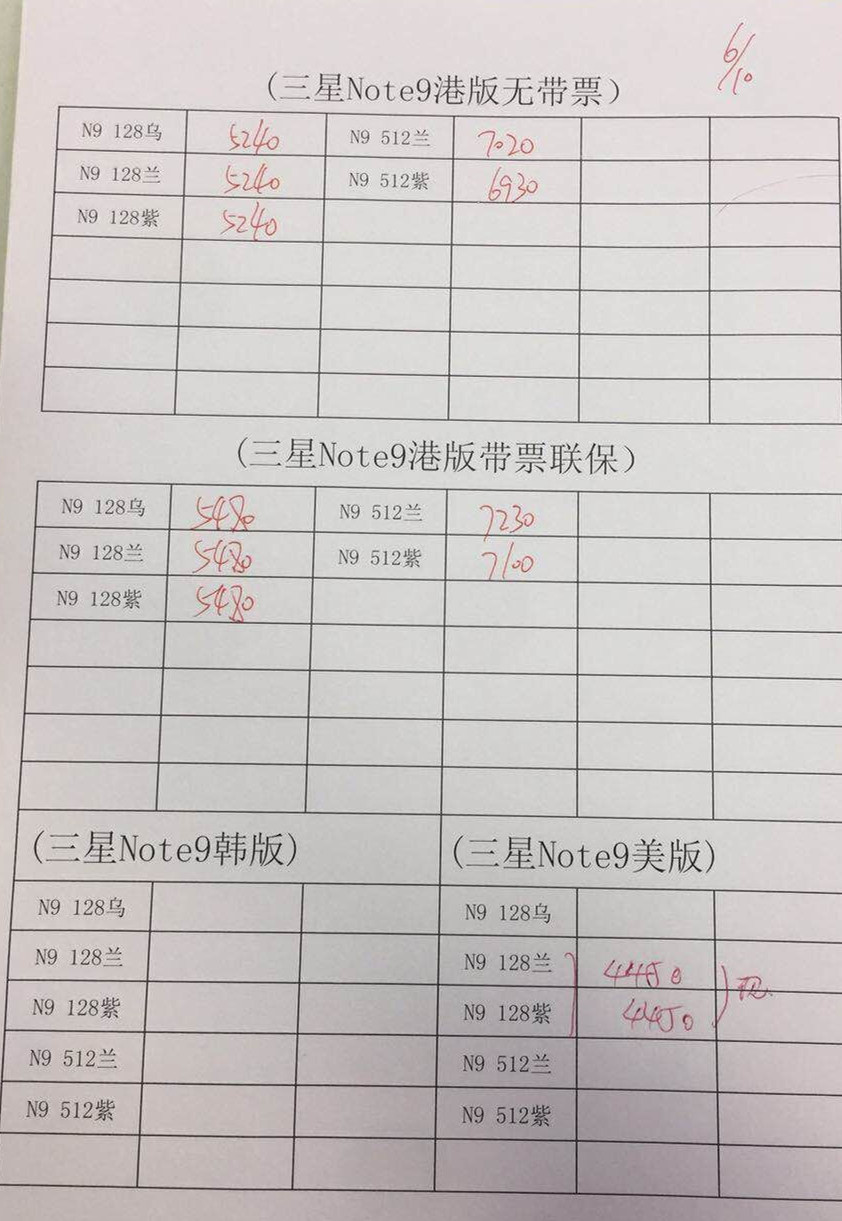 6/10
(三星Note9港版无带票)
N9 128乌 5240 N9 512兰 7020
N9 128兰 5240 N9 512紫 6930
N9 128紫 5240
(三星Note9港版带票联保)
N9 128乌 5480 N9 512兰 7230
N9 128兰 5480 N9 512紫 7100
N9 128紫 5480
(三星Note9韩版) (三星Note9美版)
N9 128乌 N9 128乌
N9 128兰 N9 128兰 4450
N9 128紫 N9 128紫 4450 现
N9 512兰 N9 512兰
N9 512紫 N9 512紫